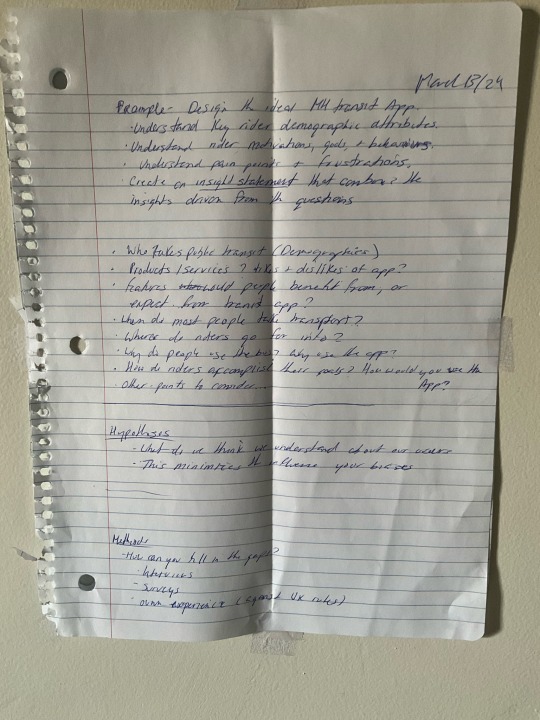 March 13/24
Example - Design the ideal MH transit App.
· Understand key rider demographic attributes.
· Understand rider motivations, goals, + behaviours.
· Understand pain points + frustrations.
· Create an insight statement that the
insights driven from the questions
· Who takes public transit (Demographics)
· Products/services? likes + dislikes of app?
· Features would people benefit from, or
expect from transit app?
· When do most people take transport?
· Where do riders go for info?
· Why do people use the bus? Why use the app?
· How do riders accomplish their goals? How would you use the
App?
· Other points to consider...
Hypotheses
- What do we think we understand about our users
- This minimizes the influence your biases
Methods
- How can you fill in the gaps?
· Interviews
· Surveys
· own experience (against UX rules)